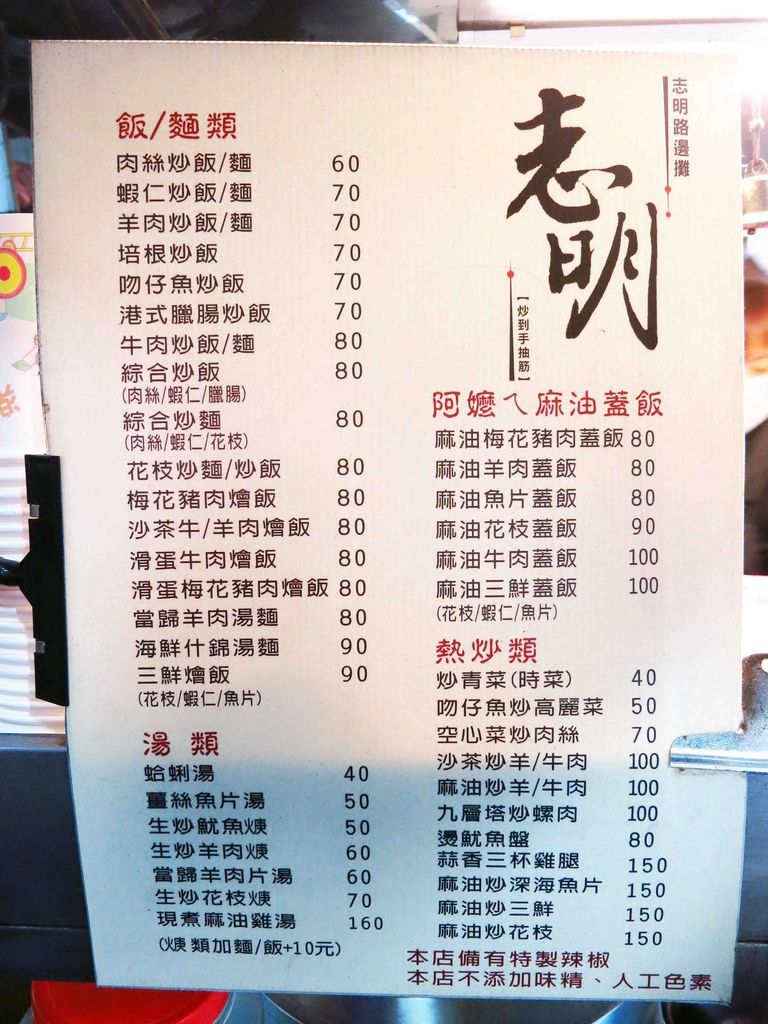 志明路邊攤
志明
【炒到手抽筋】
飯/麵類
肉絲炒飯/麵 60
蝦仁炒飯/麵 70
羊肉炒飯/麵 70
培根炒飯 70
吻仔魚炒飯 70
港式臘腸炒飯 70
牛肉炒飯/麵 80
綜合炒飯 80
(肉絲/蝦仁/臘腸)
綜合炒麵 80
(肉絲/蝦仁/花枝)
花枝炒麵/炒飯 80
梅花豬肉燴飯 80
沙茶牛/羊肉燴飯 80
滑蛋牛肉燴飯 80
滑蛋梅花豬肉燴飯 80
當歸羊肉湯麵 80
海鮮什錦湯麵 90
三鮮燴飯 90
(花枝/蝦仁/魚片)
湯類
蛤蜊湯 40
薑絲魚片湯 50
生炒魷魚焿 50
生炒羊肉焿 60
當歸羊肉片湯 60
生炒花枝焿 70
現煮麻油雞湯 160
(焿類加麵/飯+10元)
阿嬤ㄟ麻油蓋飯
麻油梅花豬肉蓋飯 80
麻油羊肉蓋飯 80
麻油魚片蓋飯 80
麻油花枝蓋飯 90
麻油牛肉蓋飯 100
麻油三鮮蓋飯 100
(花枝/蝦仁/魚片)
熱炒類
炒青菜(時菜) 40
吻仔魚炒高麗菜 50
空心菜炒肉絲 70
沙茶炒羊/牛肉 100
麻油炒羊/牛肉 100
九層塔炒螺肉 100
燙魷魚盤 80
蒜香三杯雞腿 150
麻油炒深海魚片 150
麻油炒三鮮 150
麻油炒花枝 150
本店備有特製辣椒
本店不添加味精、人工色素